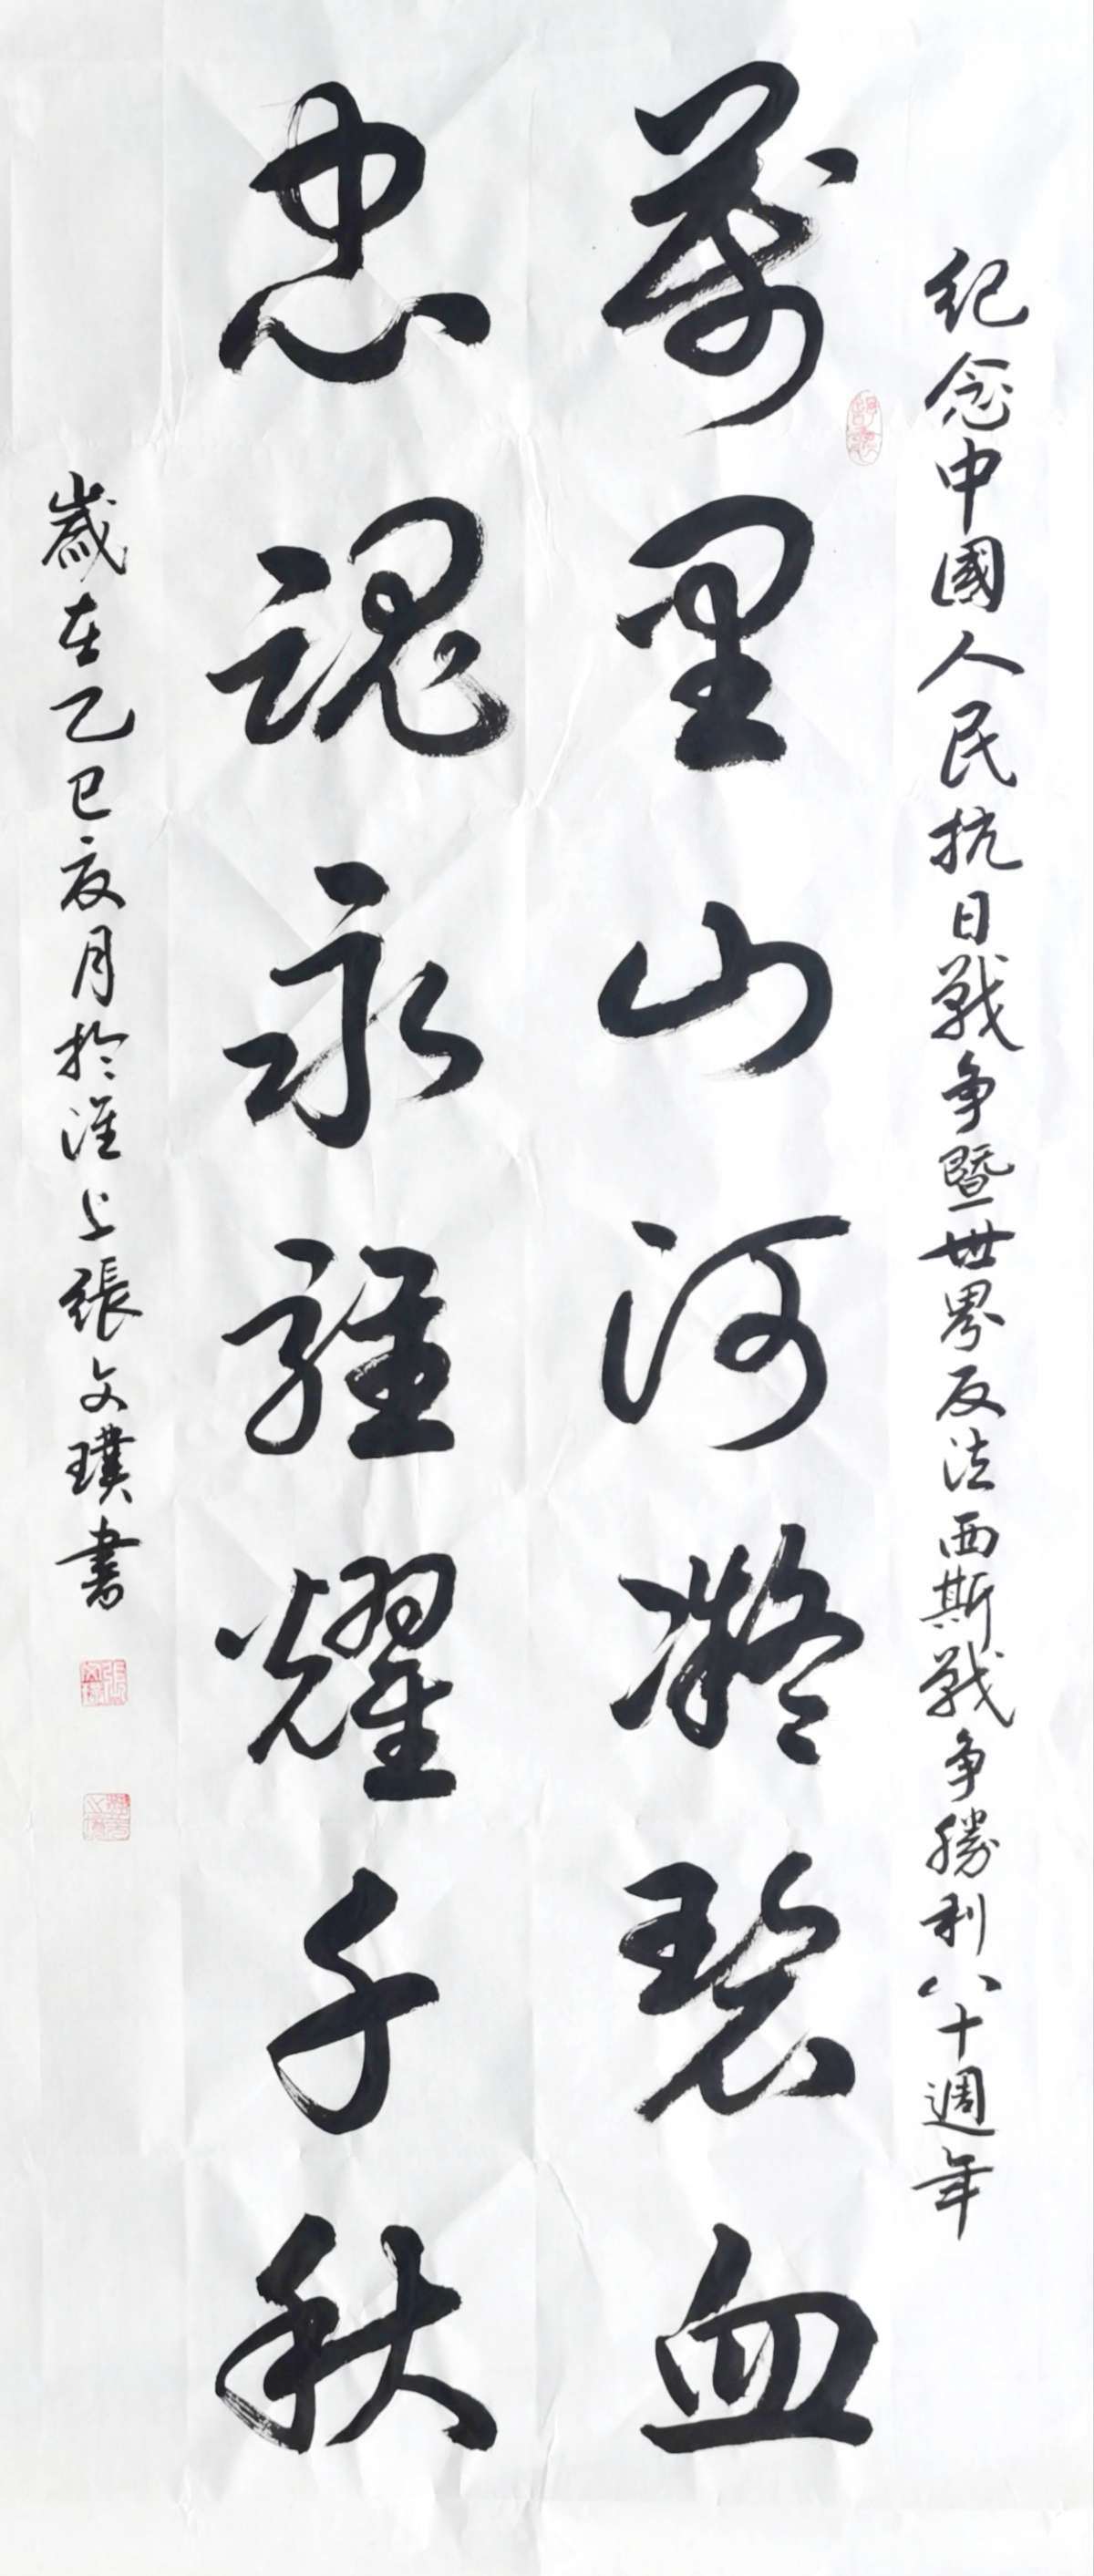 紀念中國人民抗日戰争暨世界反法西斯戰争勝利八十週年
萬里山河凝碧血
忠魂永雄耀千秋
歲在乙巳夏月於淮上張文璞書